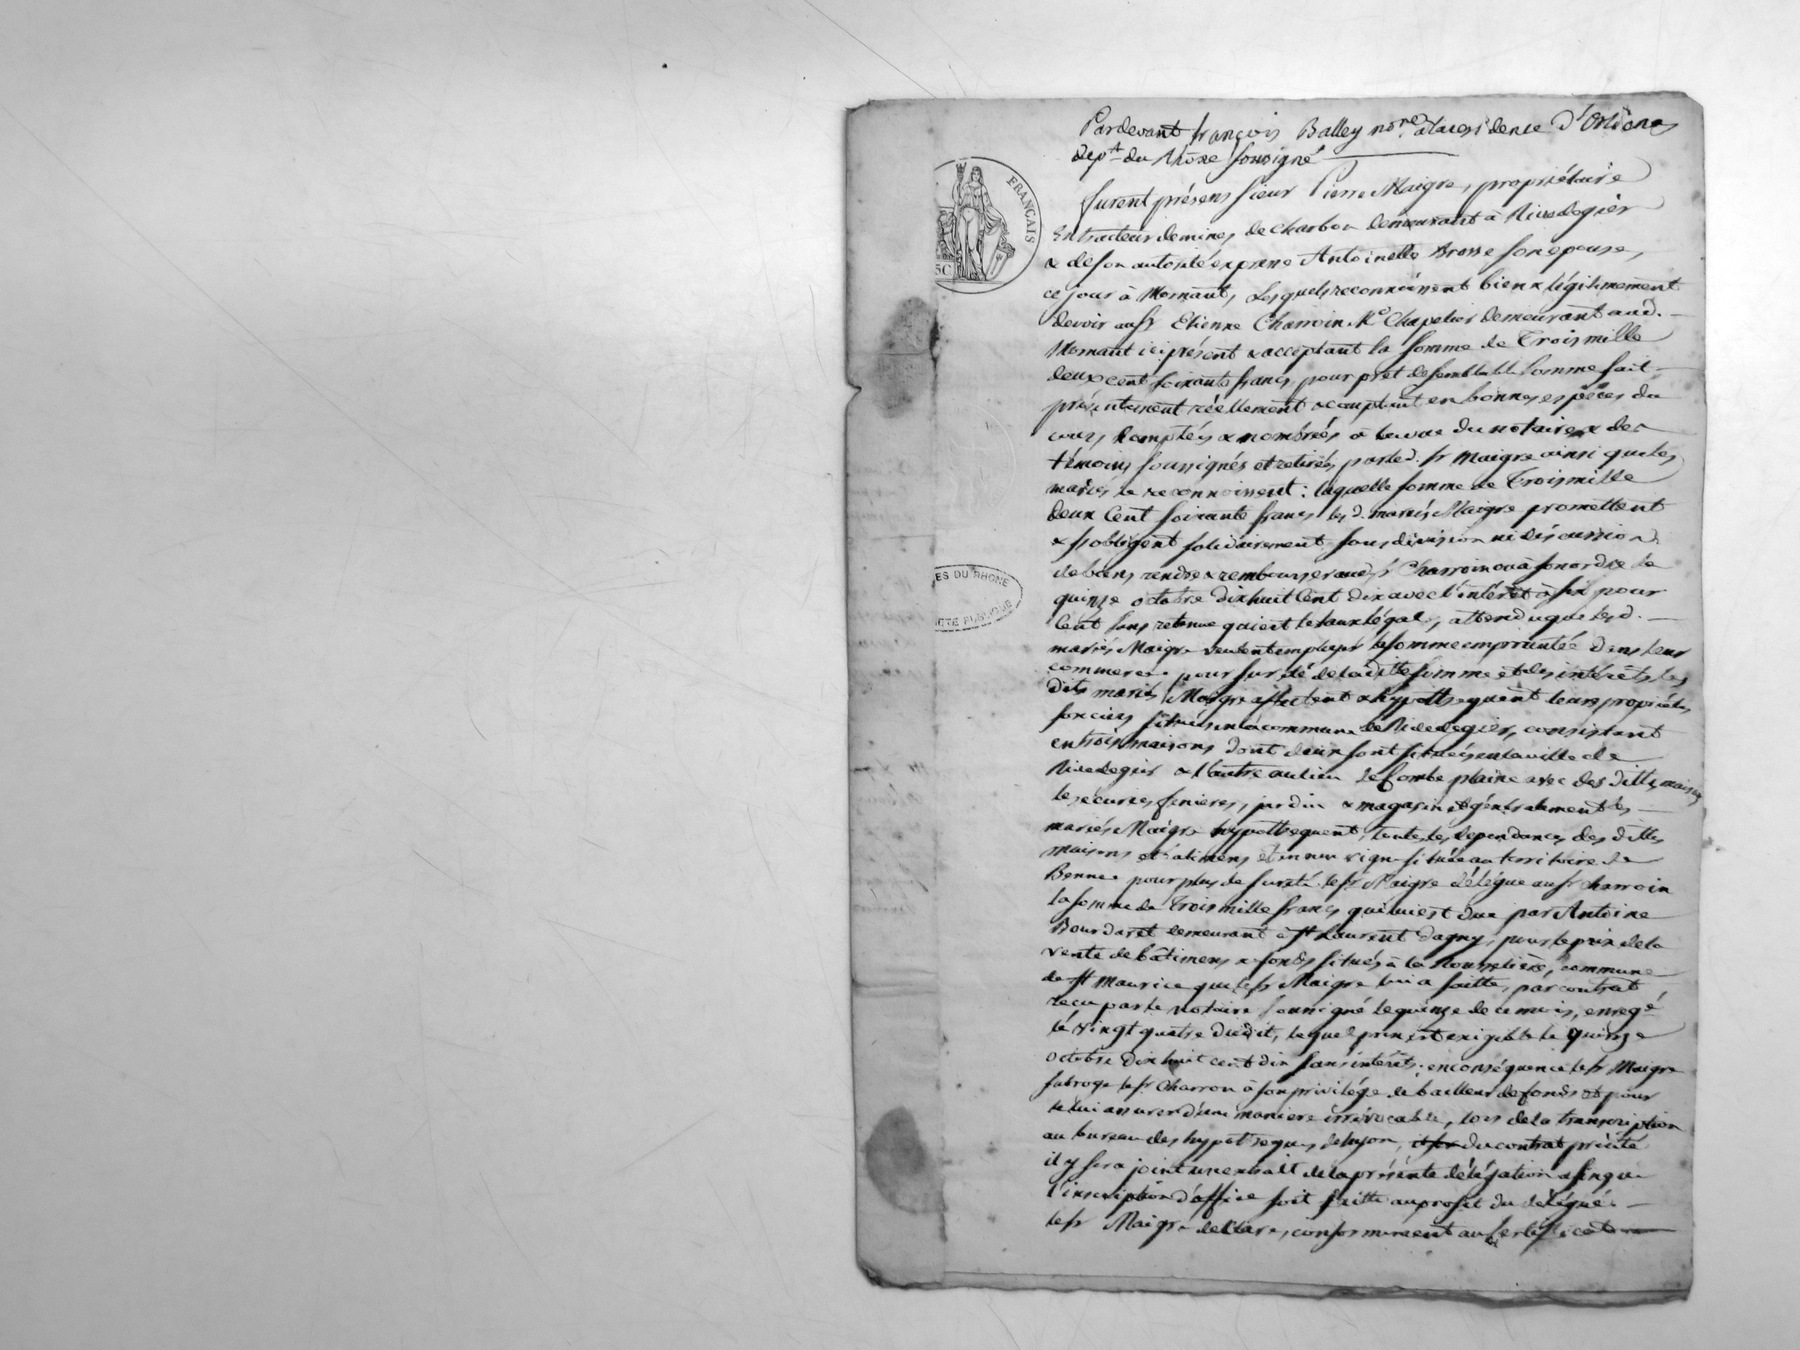 Pardevant françois Balley nore. alaresidence d'Orliénas
dept. du Rhône soussigné
FRANÇAIS
5C
furent présens sieur Pierre Maigre, propriétaire
Extracteur de mines de charbon demeurant à Rivedegier
& de son autorité expresse Antoinette Brosse son epouse,
ce jour à Mornant, Lesquels reconnoissent bien & légitimement
devoir au sr Etienne Charroin Md Chapelier demeurant aud.
Mornant ici présent & acceptant la somme de Trois mille
deux cent soixante francs pour prêt de semblable somme fait
présentement réellement & comptant en bonnes espèces du
cours comptées & nombrées à la vue du notaire & des
témoins soussignés et retirés par led. sr Maigre ainsi que les
mariés le reconnoissent : laquelle somme de Trois mille
deux Cent soixante francs les d. mariés Maigre promettent
& s'obligent solidairement sans division ni discussion
de biens rendre & rembourser aud. sr Charroin ou à son ordre le
quinze octobre dix huit Cent dix avec l'intérêt à six pour
Cent sans retenue qui est le taux légal, attendu que les d.
mariés Maigre veulent employer la somme empruntée dans leur
commerce. pour sureté de la ditte somme et des intérêts les
dits mariés Maigre affectent & hypothequent leurs propriétés
foncières situées en la commune de Rivedegier, consistant
en trois maisons dont deux sont situées en la ville de
Rivedegier & l'autre au lieu de Combe plaine avec des dittes maisons
les écuries fenières, jardin & magasin et généralement les
mariés Maigre hypothequent, toutes les dependances des dittes
maisons et batimens et en une vigne située au territoire de
Benne. pour plus de sureté le sr Maigre délégue au sr Charroin
la somme de Trois mille francs qui lui est due par Antoine
Bourdaret demeurant à St Laurent dagny, pour le prix de la
vente de bâtimens & fonds situés à la Rousselière, commune
de St Maurice que le sr Maigre lui a faitte, par contrat
recu par le notaire soussigné le quinze de ce mois, enregé
le vingt quatre dudit, lequel prix est exigible le quinze
octobre dix huit cent dix sans intérêts ; en conséquence le sr Maigre
subroge le sr Charron à son privilége de bailleur de fonds et pour
le lui assurer d'une maniere irrévocable, lors de la transcription
au bureau des hypotheques de Lyon, du contrat précité
il y sera joint un extrait de la présente délégation afin que
l'inscription d'office soit faitte au profit du délégué.
le sr Maigre declare, conformément au certificat
ES DU RHONE